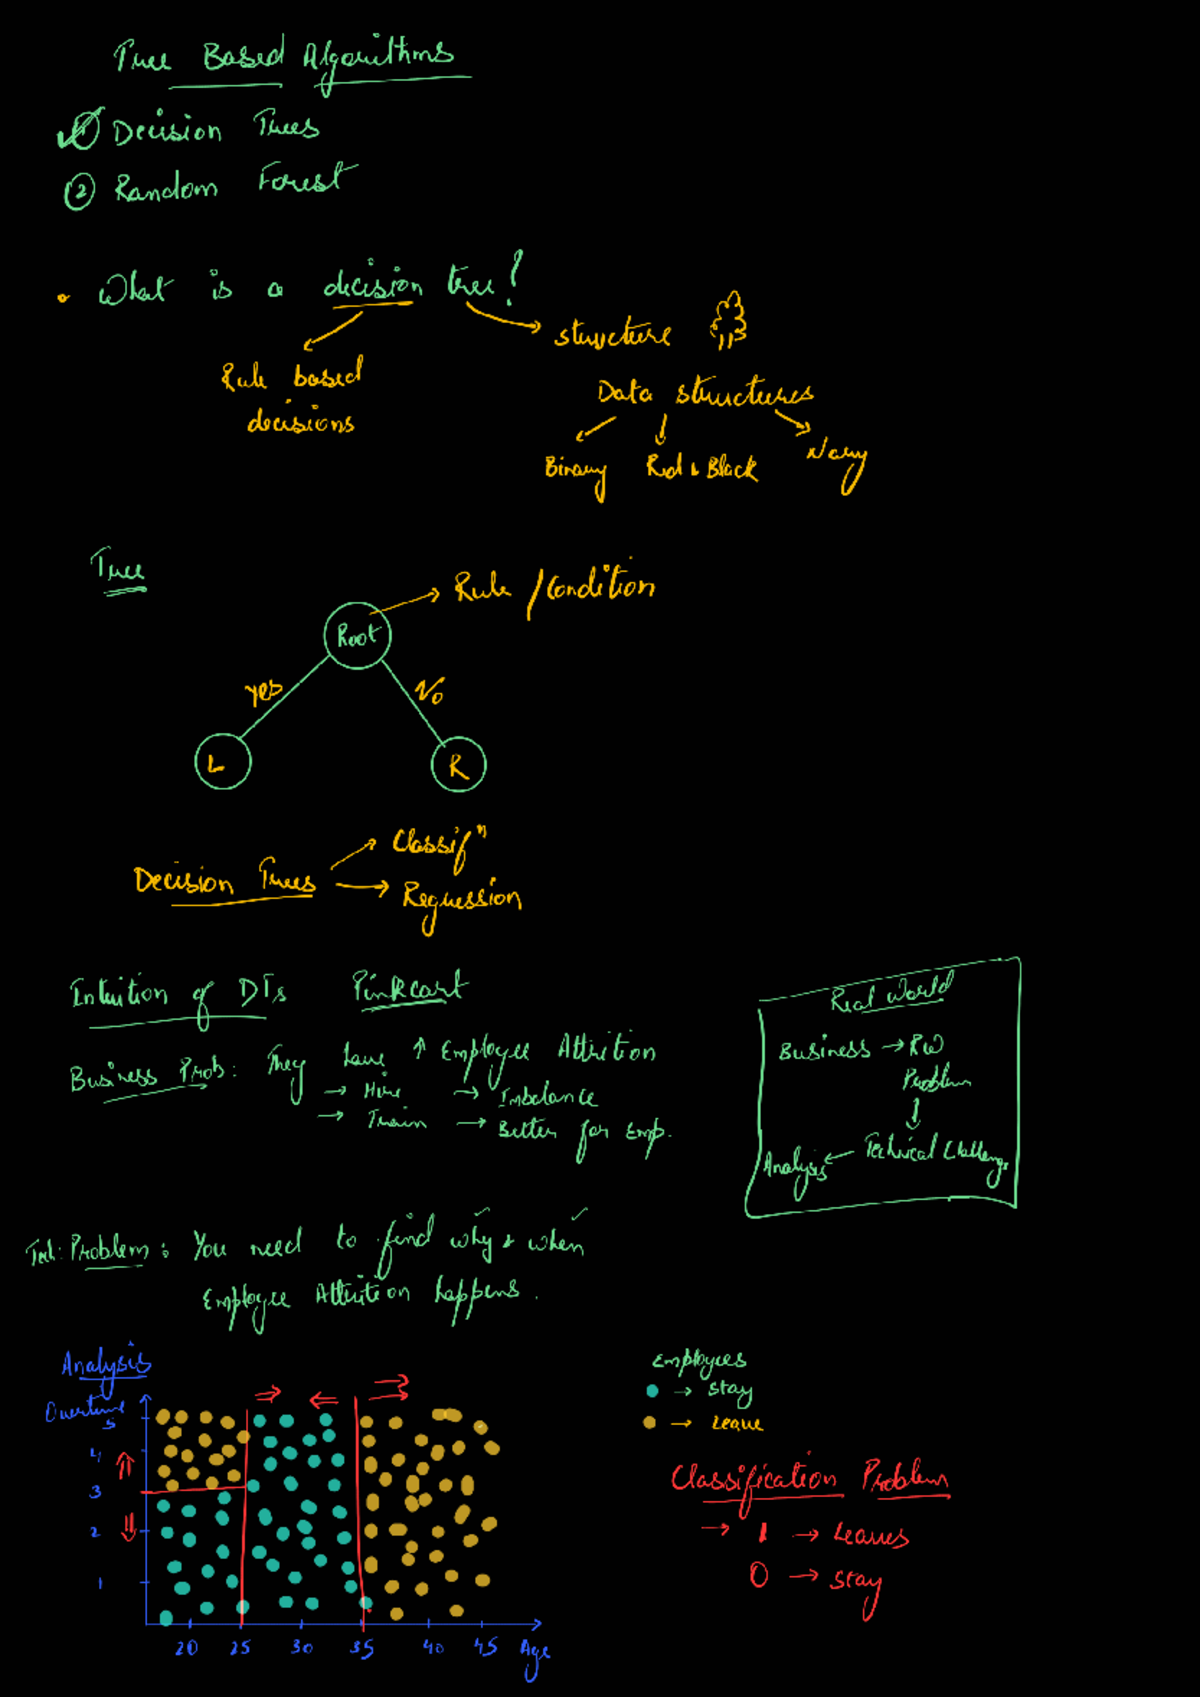 Tree Based Algorithms
① Decision Trees
② Random Forest
• What is a decision tree?
structure
Rule based
decisions
Data structures
Binary Red & Black Nary
Tree
Rule / Condition
Root
Yes No
L R
Classifⁿ
Decision Trees
Regression
Intuition of DTs Pinkcart
Business Prob: They have ↑ Employee Attrition
→ Hire → Imbalance
→ Train → Better for Emp.
Real World
Business → RW
Problem
↓
Technical Challenge
Analysis ←
Tech: Problem: You need to find why & when
Employee Attrition happens.
Analysis
Overtime
5
4
3
2
1
20 25 30 35 40 45 Age
Employees
→ Stay
→ Leave
Classification Problem
→ 1 → Leaves
0 → Stay